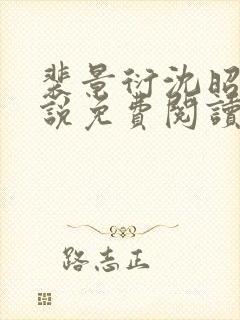 裴景衍沈昭
說免費閱讀
路志正